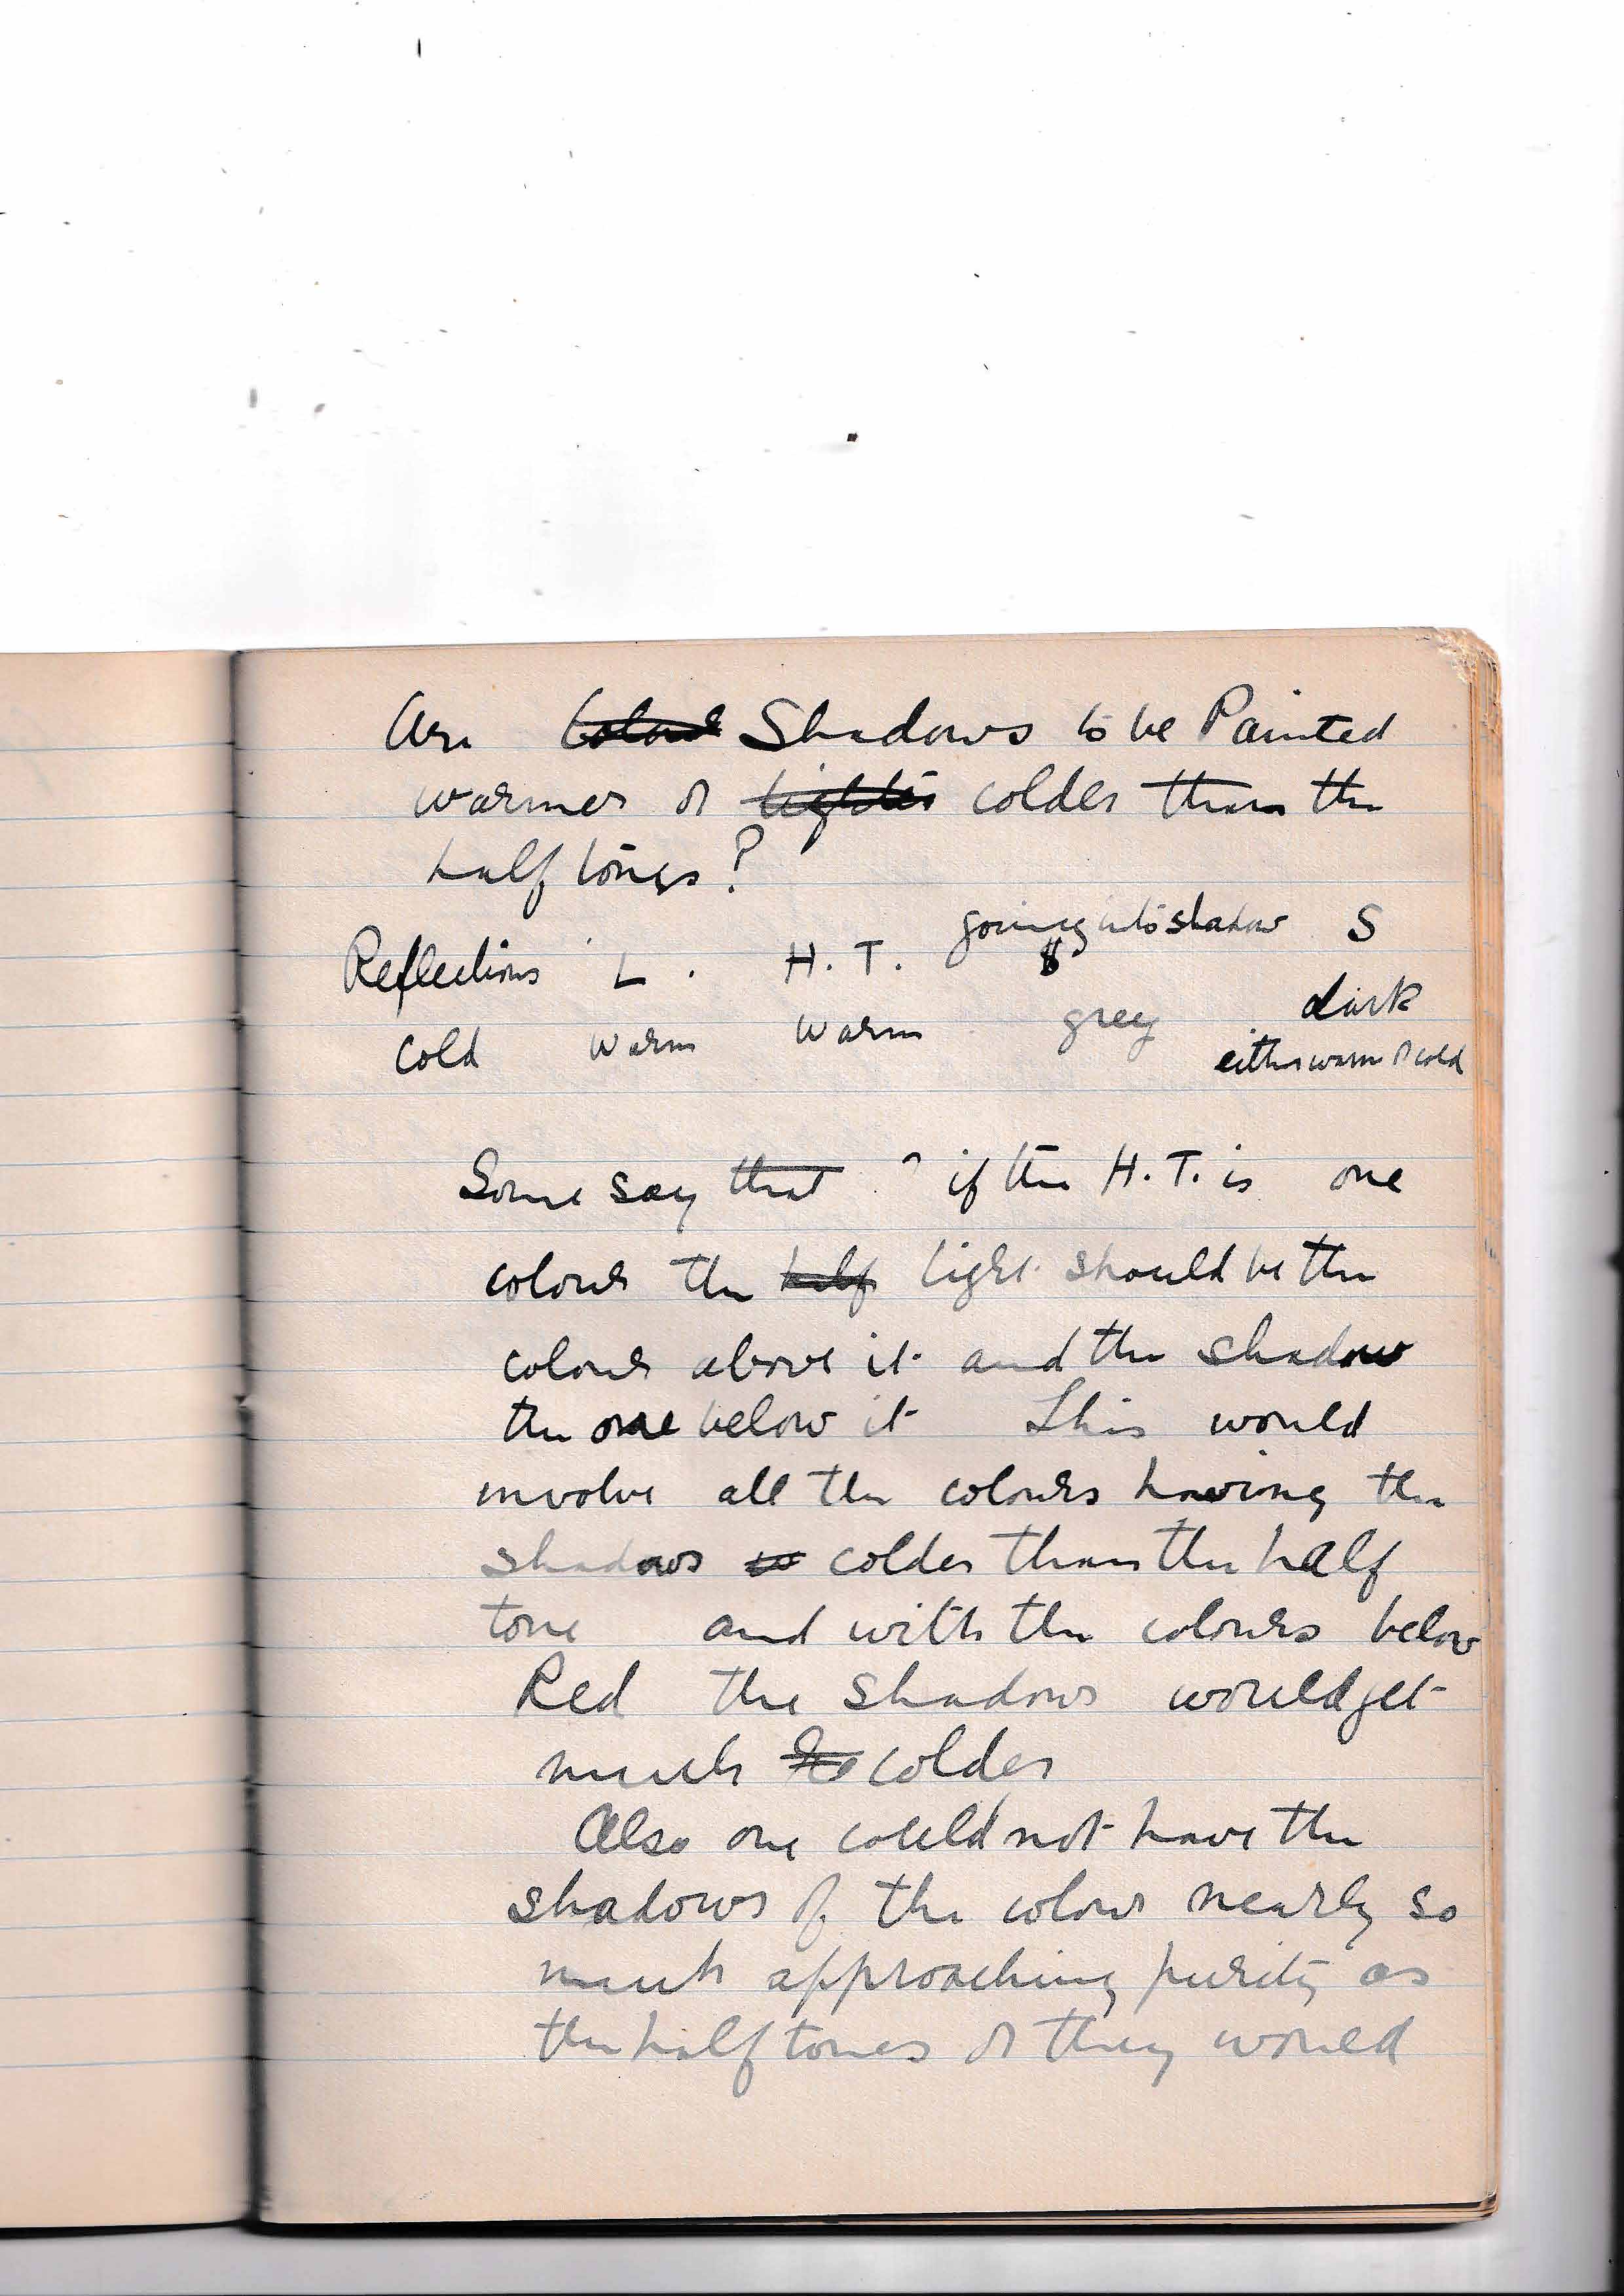 Are Colour Shadows to be Painted
warmer or lighter colder than the
half tones?
going into shadow S
Reflections L. H.T. S
dark
cold warm warm grey
either warm or cold
Some say that if the H.T. is one
colour the half light should be the
colour above it and the shadow
the one below it This would
involve all the colours having the
shadows colder than the half
tone and with the colours below
Red the shadows would get
much colder
Also one could not have the
shadows of the colour nearly so
much approaching purity as
the half tones or they would